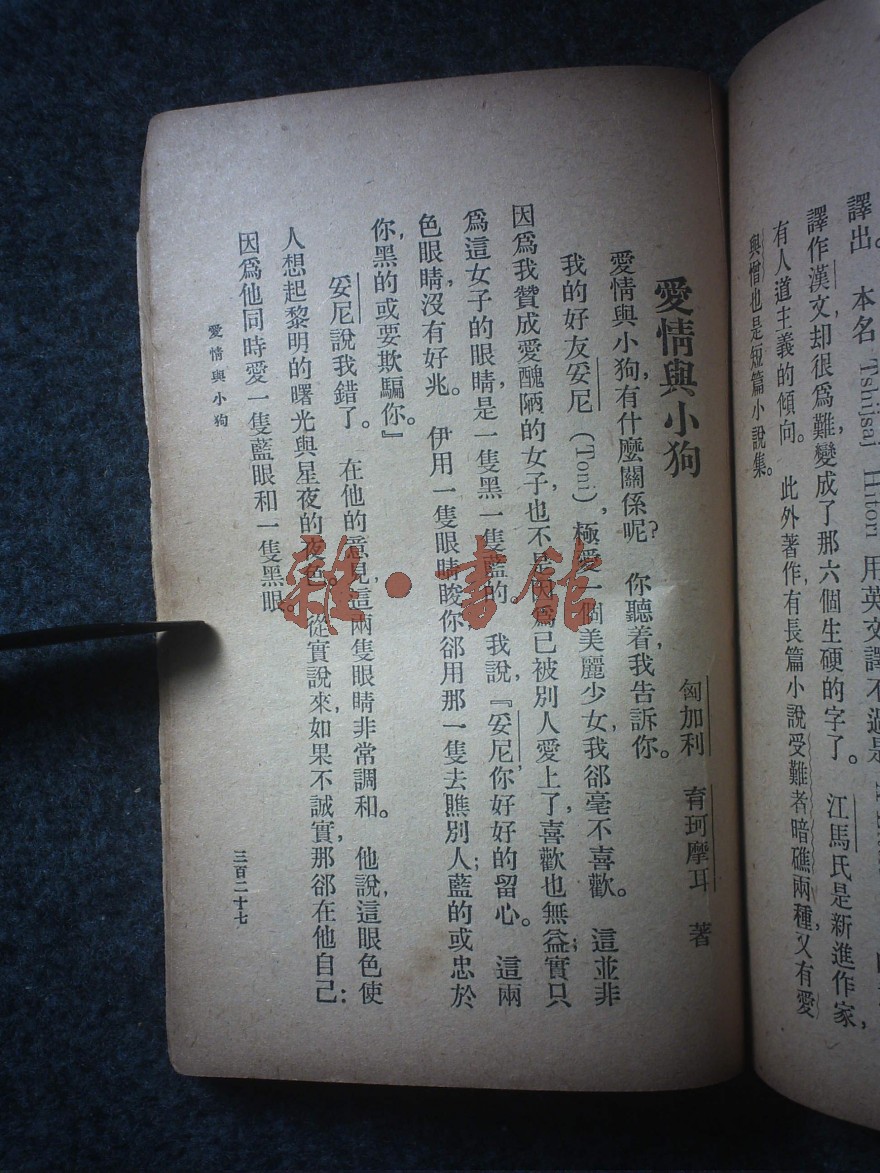 譯出。 本名 Tshijsaj Hiton 用英文譯不過是
譯作漢文，却很爲難，變成了那六個生硬的字了。 江馬氏是新進作家，
有人道主義的傾向。 此外著作，有長篇小說受難者暗礁兩種，又有愛
與憎也是短篇小說集。
愛情與小狗
匈加利 育珂摩耳 著
愛情與小狗，有什麼關係呢？ 你聽着，我告訴你。
我的好友妥尼（Toni），極愛一個美麗少女，我郤毫不喜歡。 這並非
因爲我贊成愛醜陋的女子，也不是因爲已被別人愛上了，喜歡也無益；實只
爲這女子的眼睛，是一隻黑一隻藍的。 我說，『妥尼，你好好的留心。 這兩
色眼睛，沒有好兆。 伊用一隻眼睛睃你，郤用那一隻去瞧別人；藍的或忠於
你，黑的或要欺騙你。』
妥尼說我錯了。 在他的意見，這兩隻眼睛非常調和。 他說，這眼色使
人想起黎明的曙光與星夜的夜色。 從實說來，如果不誠實，那郤在他自己：
因爲他同時愛一隻藍眼和一隻黑眼。
愛情與小狗
三百二十七
雜·書館